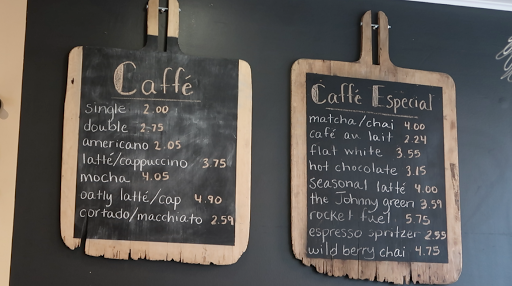 Caffé
single 2.00
double 2.75
americano 2.05
latté/cappuccino 3.75
mocha 4.05
oatly latté/cap 4.90
cortado/macchiato 2.59
Caffé Especial
matcha/chai 4.00
café au lait 2.24
flat white 3.55
hot chocolate 3.15
seasonal latté 4.00
the Johnny green 3.59
rocket fuel 5.75
espresso spritzer 2.55
wild berry chai 4.75